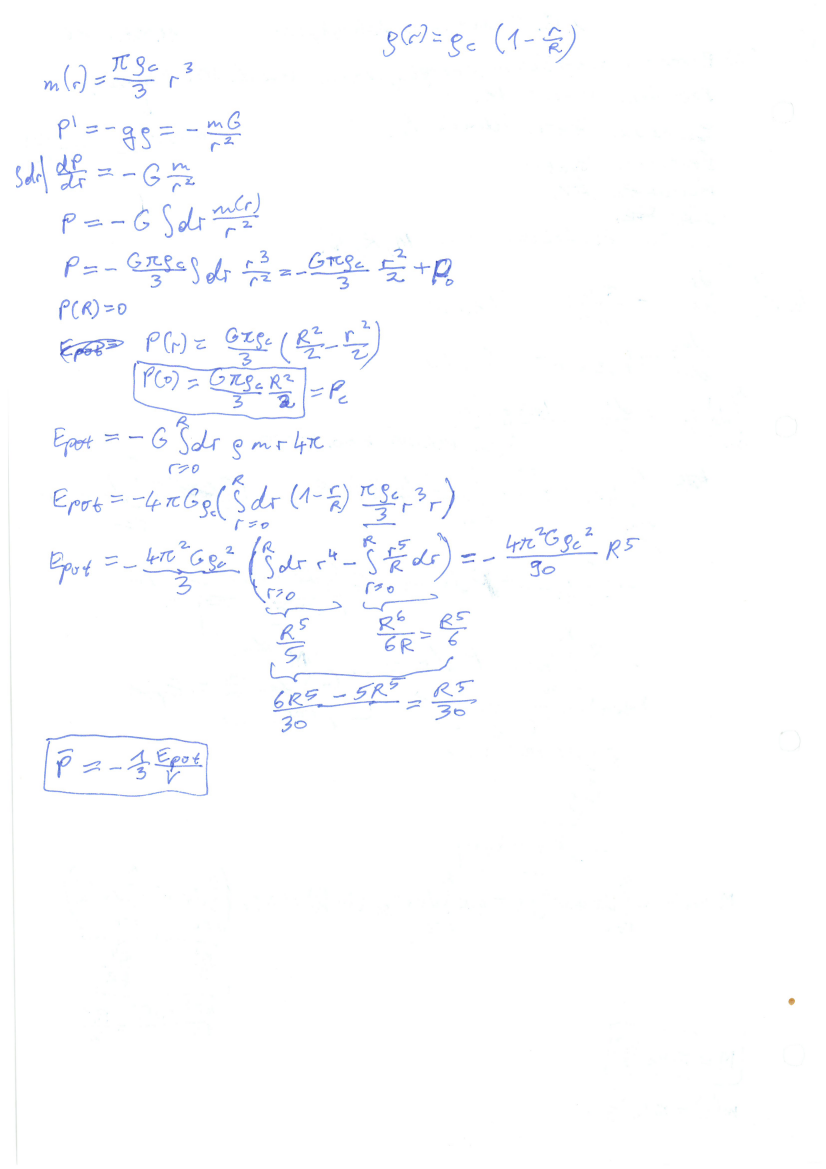 ρ(r) = ρc (1 - r/R)
m(r) = πρc/3 r³
P' = -gρ = - mG/r²
∫dr| dP/dr = - G m/r²
P = - G ∫dr m(r)/r²
P = - Gπρc/3 ∫dr r³/r² = - Gπρc/3 r²/2 + P₀
P(R) = 0
Epot = P(r) = Gπρc/3 (R²/2 - r²/2)
P(0) = Gπρc/3 R²/2 = Pc
Epot = - G ∫_{r=0}^{R} dr ρ m r 4π
Epot = -4πGρc (∫_{r=0}^{R} dr (1 - r/R) πρc/3 r³ r)
Epot = - 4π²Gρc²/3 (∫_{r=0}^{R} dr r⁴ - ∫_{r=0}^{R} r⁵/R dr) = - 4π²Gρc²/90 R⁵
R⁵/5 R⁶/6R = R⁵/6
6R⁵ - 5R⁵/30 = R⁵/30
P̄ = - 1/3 Epot/V